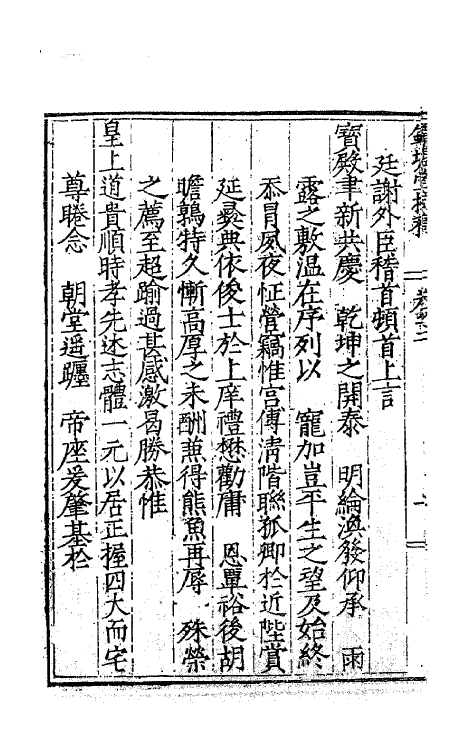 廷謝外臣稽首頓首上言
寳殿聿新共慶　乾坤之開泰　明綸渙發仰承　雨
露之敷温在序列以　寵加豈平生之望及始終
忝冒夙夜怔營竊惟宫傳清階聯孤卿於近陛賞
延彛典依俊士於上庠禮懋勸庸　恩覃裕後胡
瞻鶉特久慚高厚之未酬兼得熊魚再辱　殊榮
之薦至超踰過甚感激曷勝恭惟
皇上道貴順時孝先述志體一元以居正握四大而宅
尊睠念　朝堂遥躔　帝座爰肇基於